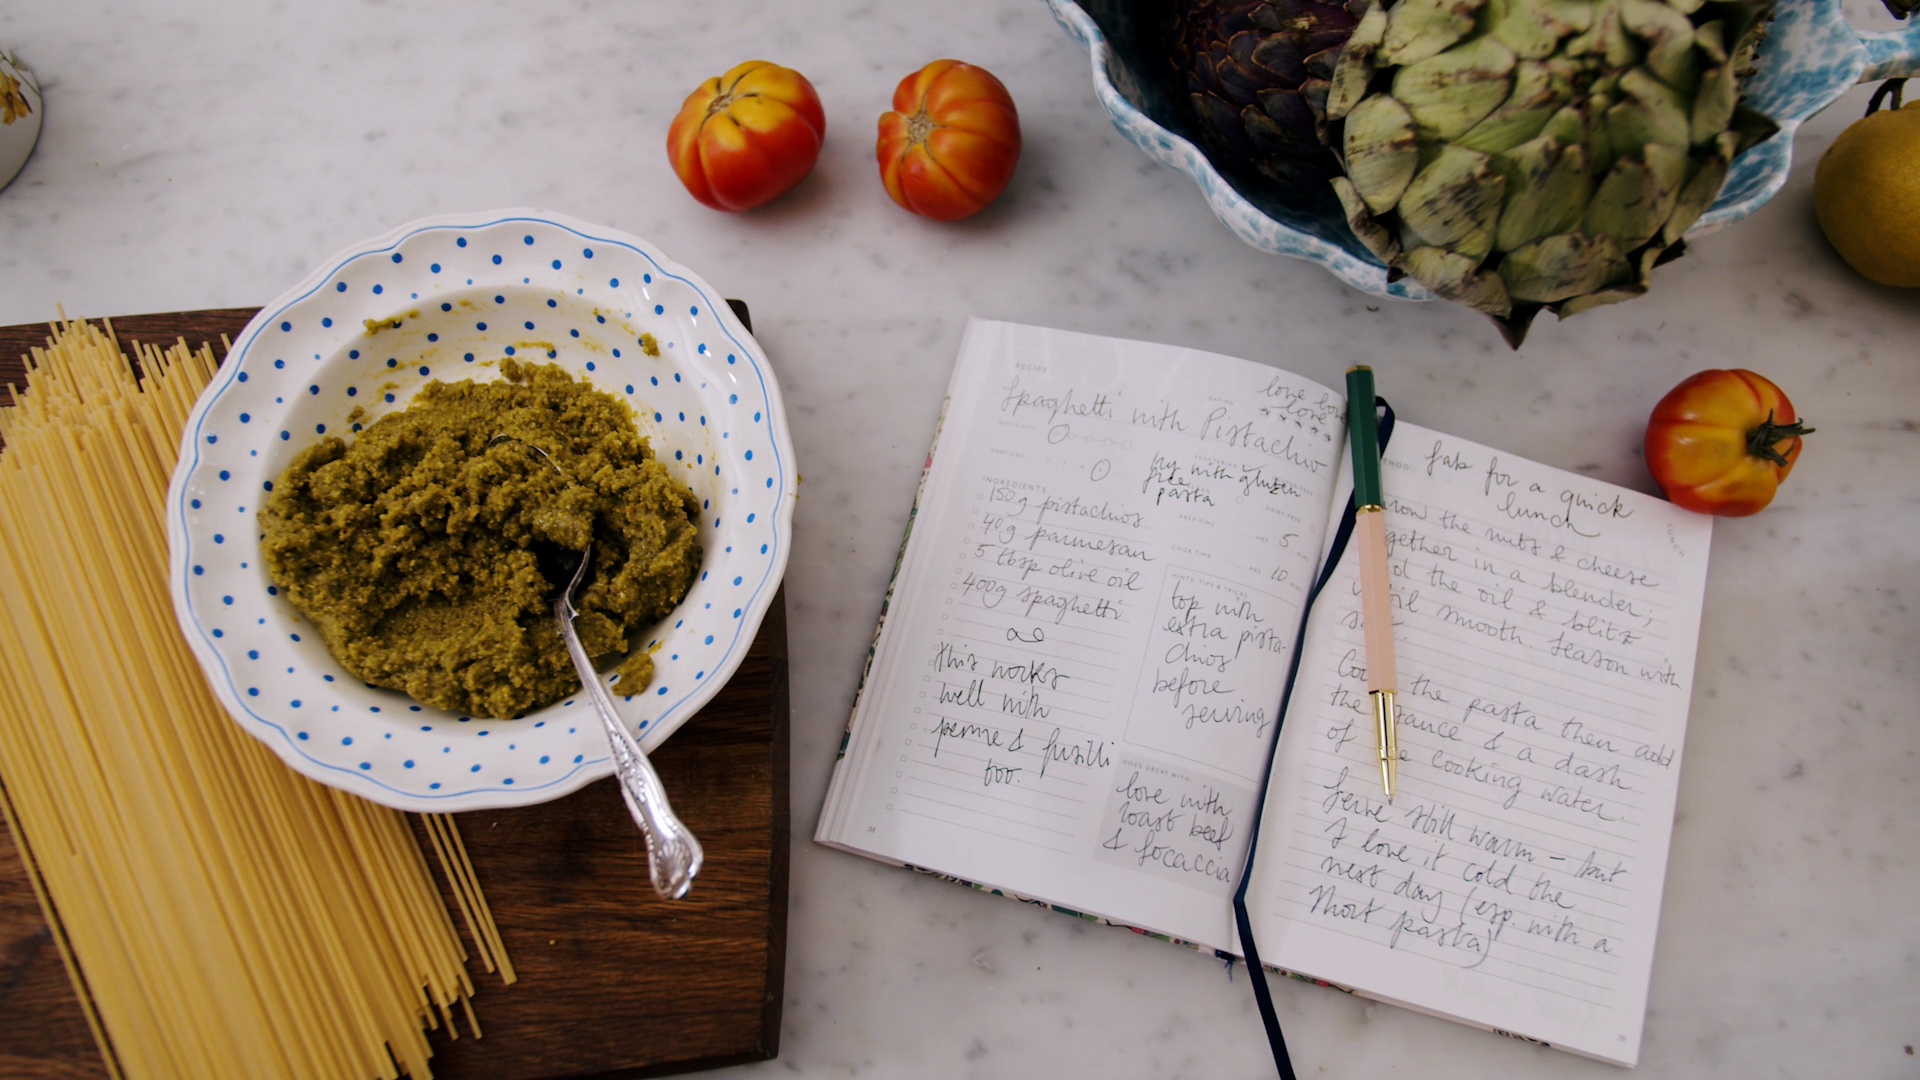 RECIPE
Spaghetti with Pistachio
RATING
love love
love
DIFFICULTY
PORTIONS
VEGETARIAN
try with gluten
free
pasta
DAIRY-FREE
PREP TIME
HRS 5 MINS
COOK TIME
HRS 10 MINS
INGREDIENTS
150g pistachios
40g parmesan
5 tbsp olive oil
400g spaghetti
this works
well with
penne & fusilli
too.
HINTS, TIPS & TRICKS
top with
extra pista-
chios
before
serving
GOES GREAT WITH
love with
roast beef
& focaccia
38
METHOD
fab for a quick
lunch
LUNCH
the nuts & cheese
in a blender;
the oil & blitz
smooth. Season with
the pasta then add
the sauce & a dash
of cooking water.
Serve still warm – but
I love it cold the
next day (esp. with a
short pasta)